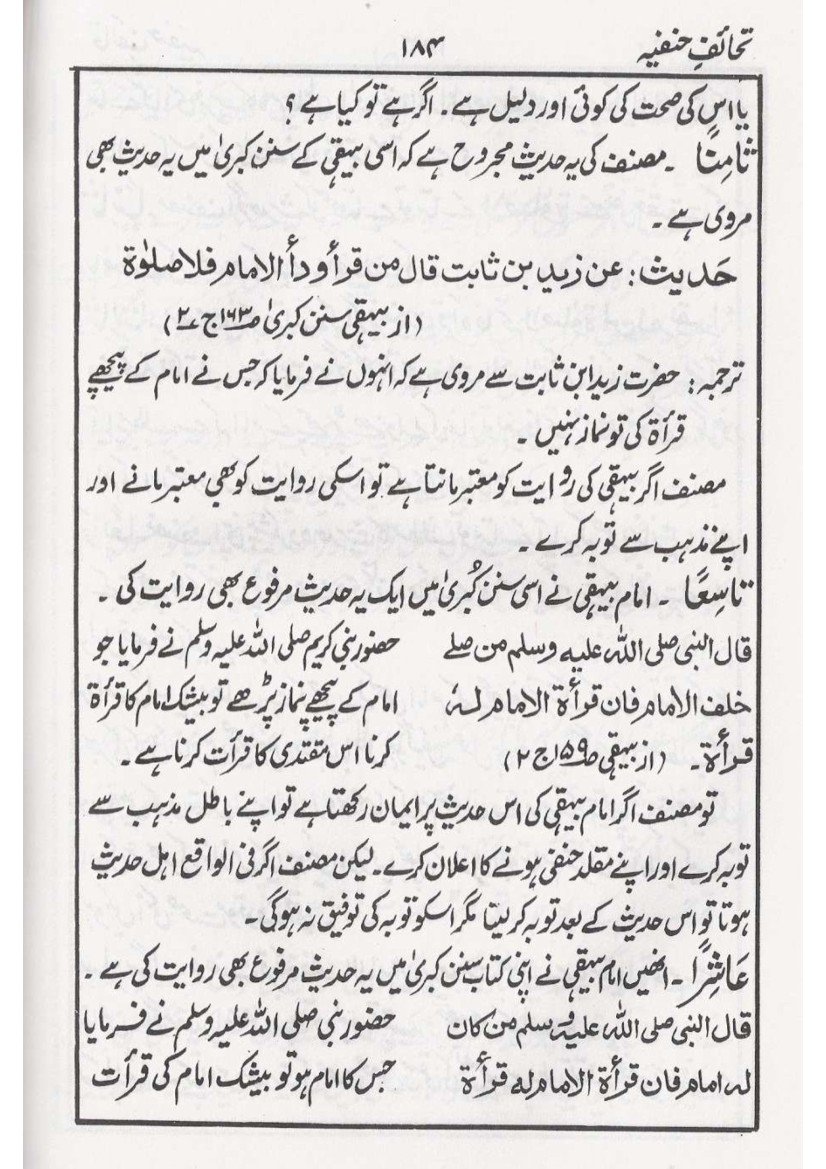 تحائفِ حنفیہ ۱۸۴
یا اس کی صحت کی کوئی اور دلیل ہے۔ اگر ہے تو کیا ہے؟
ثامِنًا ۔ مصنف کی یہ حدیث مجروح ہے کہ اسی بیہقی کے سنن کبریٰ میں یہ حدیث بھی
مروی ہے۔
حَدیث: عن زید بن ثابت قال من قرأ ودأ الامام فلا صلوٰة
(از بیہقی سنن کبریٰ ص۱۶۳ ج۲)
ترجمہ: حضرت زید ابن ثابت سے مروی ہے کہ انہوں نے فرمایا کہ جس نے امام کے پیچھے
قرأة کی تو نماز نہیں۔
مصنف اگر بیہقی کی روایت کو معتبر مانتا ہے تو اسکی روایت کو بھی معتبر مانے اور
اپنے مذہب سے توبہ کرے۔
تاسِعًا ۔ امام بیہقی نے اسی سنن کُبریٰ میں ایک یہ حدیث مرفوع بھی روایت کی ۔
قال النبی صلی اللہ علیہ وسلم من صلے حضور نبی کریم صلی اللہ علیہ وسلم نے فرمایا جو
خلف الامام فان قرأة الامام لہٗ امام کے پیچھے نماز پڑھے تو بیشک امام کا قرأة
قرأة۔ (از بیہقی ص۱۵۹ ج۲) کرنا اس مقتدی کا قرأت کرنا ہے۔
تو مصنف اگر امام بیہقی کی اس حدیث پر ایمان رکھتا ہے تو اپنے باطل مذہب سے
توبہ کرے اور اپنے مقلد حنفی ہونے کا اعلان کرے۔ لیکن مصنف اگر فی الواقع اہل حدیث
ہوتا تو اس حدیث کے بعد توبہ کر لیتا مگر اسکو توبہ کی توفیق نہ ہوگی۔
عَاشِرًا ۔ انھیں امام بیہقی نے اپنی کتاب سنن کبریٰ میں یہ حدیث مرفوع بھی روایت کی ہے۔
قال النبی صلی اللہ علیہ وسلم من کان حضور نبی صلی اللہ علیہ وسلم نے فرمایا
لہ امام فان قرأة الامام لہ قرأة جس کا امام ہو تو بیشک امام کی قرأت